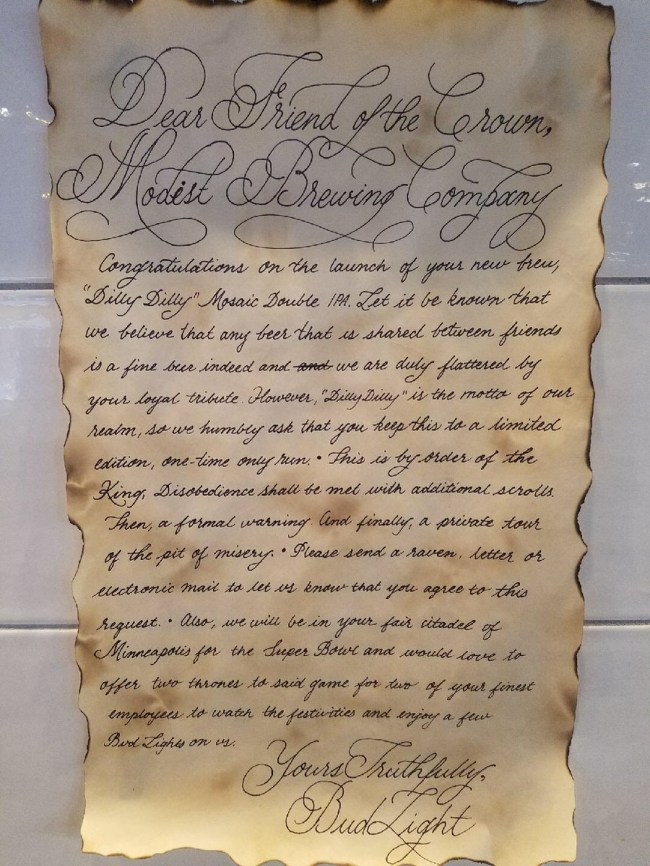 Dear Friend of the Crown,
Modest Brewing Company
Congratulations on the launch of your new brew,
"Dilly Dilly" Mosaic Double IPA. Let it be known that
we believe that any beer that is shared between friends
is a fine beer indeed and and we are duly flattered by
your loyal tribute. However, "Dilly Dilly" is the motto of our
realm, so we humbly ask that you keep this to a limited
edition, one-time only run. • This is by order of the
King, Disobedience shall be met with additional scrolls.
Then, a formal warning. And finally, a private tour
of the pit of misery. • Please send a raven, letter or
electronic mail to let us know that you agree to this
request. • Also, we will be in your fair citadel of
Minneapolis for the Super Bowl and would love to
offer two thrones to said game for two of your finest
employees to watch the festivities and enjoy a few
Bud Lights on us.
Yours Truthfully,
Bud Light